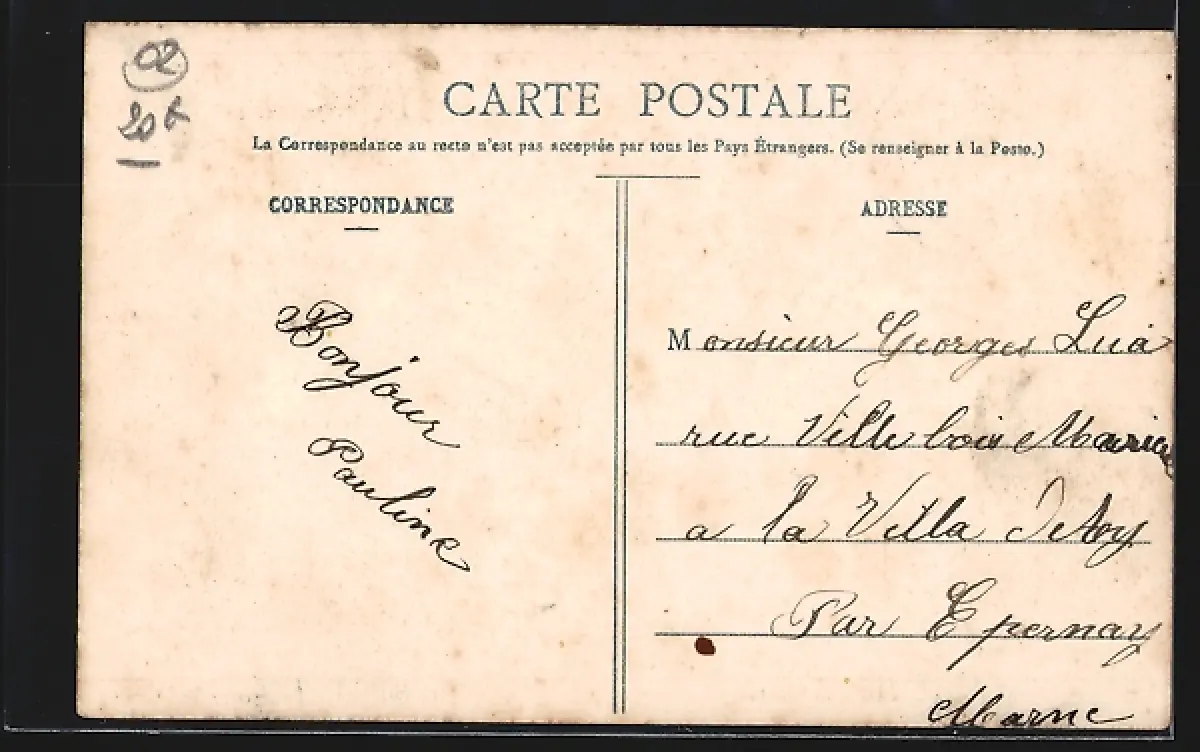 02
20f
CARTE POSTALE
La Correspondance au recto n'est pas acceptée par tous les Pays Étrangers. (Se renseigner à la Poste.)
CORRESPONDANCE
Bonjour
Pauline
ADRESSE
Monsieur Georges
rue Ville bois
a la Villa
Par Epernay
Marne